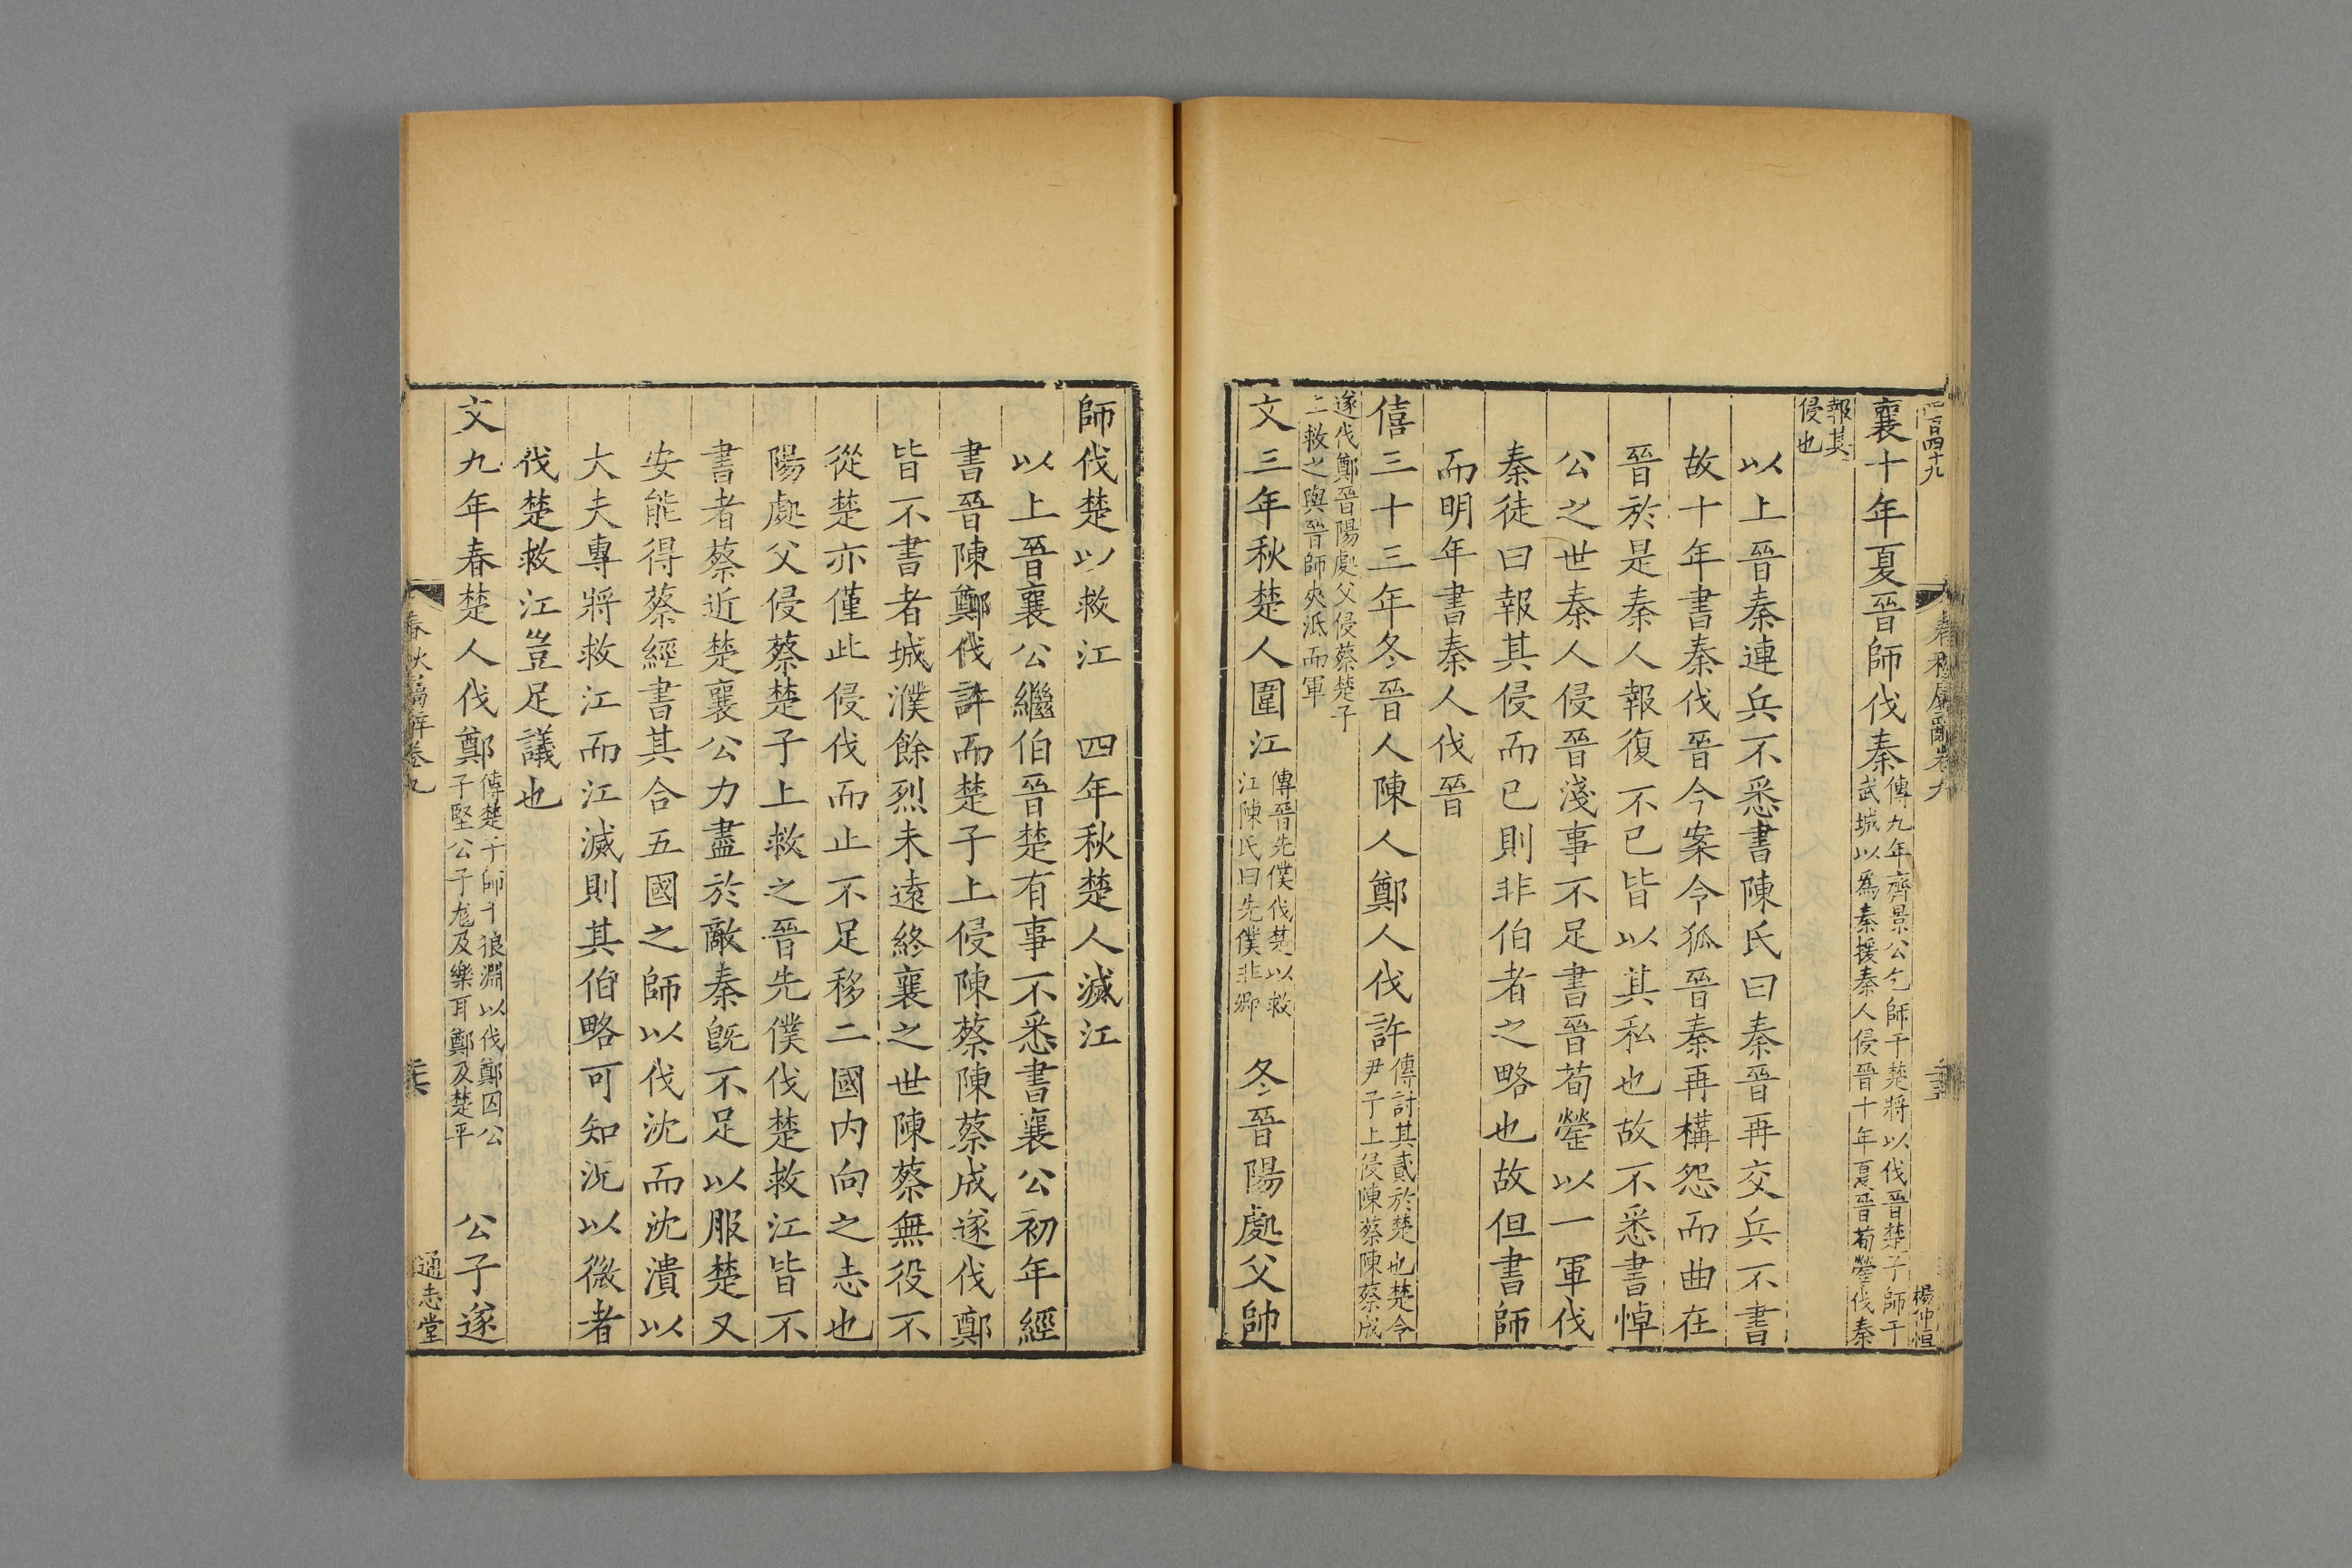 襄十年夏晉師伐秦傳九年齊景公乞師于楚將以伐晉楚子師于武城以爲秦援秦人侵晉十年夏晉荀罃伐秦
報其侵也
以上晉秦連兵不悉書陳氏曰秦晉再交兵不書
故十年書秦伐晉今案令狐晉秦再構怨而曲在
晉於是秦人報復不已皆以其私也故不悉書悼
公之世秦人侵晉淺事不足書晉荀罃以一軍伐
秦徒曰報其侵而已則非伯者之略也故但書師
而明年書秦人伐晉
僖三十三年冬晉人陳人鄭人伐許傳討其貳於楚也楚令尹子上侵陳蔡陳蔡成
遂伐鄭晉陽處父侵蔡楚子上救之與晉師夾泜而軍
文三年秋楚人圍江傳晉先僕伐楚以救江陳氏曰先僕非卿 冬晉陽處父帥
師伐楚以救江 四年秋楚人滅江
以上晉襄公繼伯晉楚有事不悉書襄公初年經
書晉陳鄭伐許而楚子上侵陳蔡陳蔡成遂伐鄭
皆不書者城濮餘烈未遠終襄之世陳蔡無役不
從楚亦僅此侵伐而止不足移二國内向之志也
陽處父侵蔡楚子上救之晉先僕伐楚救江皆不
書者蔡近楚襄公力盡於敵秦旣不足以服楚又
安能得蔡經書其合五國之師以伐沈而沈潰以
大夫專將救江而江滅則其伯略可知況以微者
伐楚救江豈足議也
文九年春楚人伐鄭傳楚子師于狼淵以伐鄭囚公子堅公子尨及樂耳鄭及楚平 公子遂
春秋屬辭卷九
通志堂
楊仲恒